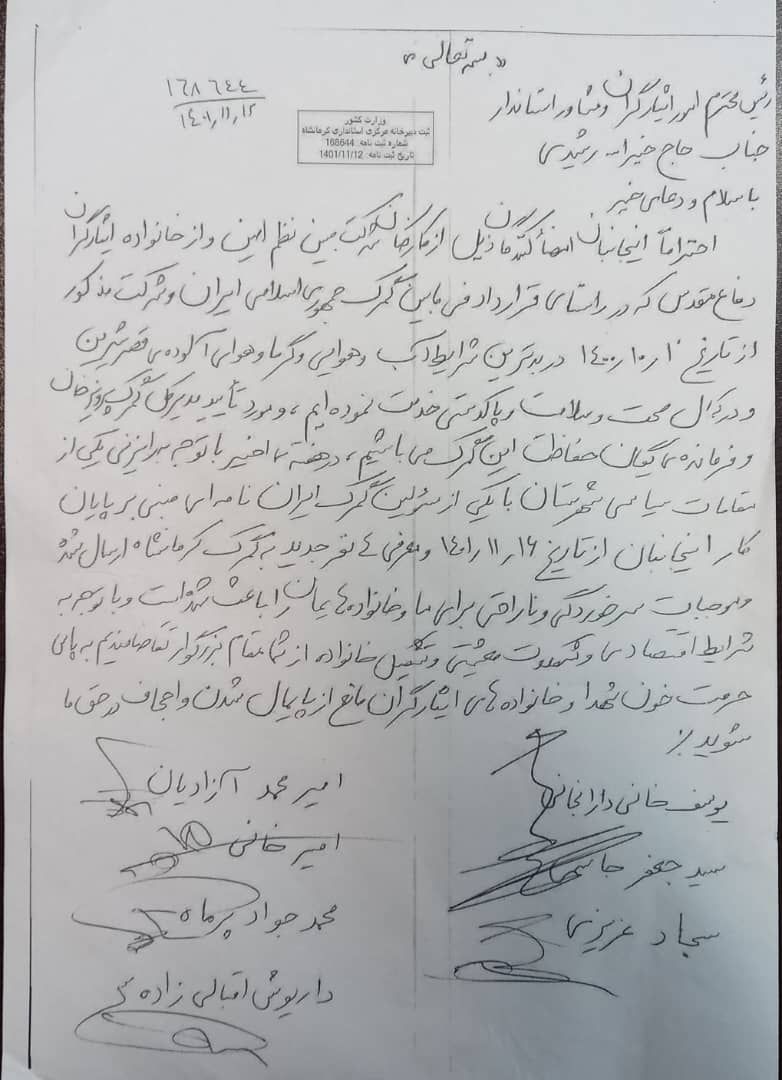 «بسمه تعالی»
رئیس محترم امور ایثارگران و مشاور استاندار
جناب حاج خیراله رشیدی
۱۶۸۶٤٤
۱۴۰۱٫۱۱٫۱۲
وزارت کشور
ثبت دبیرخانه مرکزی استانداری کرمانشاه
شماره ثبت نامه: 168644
تاریخ ثبت نامه: 1401/11/12
با سلام و دعای خیر
احتراماً اینجانبان امضاء کنندگان ذیل از کارکنان شرکت مبین نظم امین و از خانواده ایثارگران
دفاع مقدس که در راستای قرارداد فی مابین گمرک جمهوری اسلامی ایران و شرکت مذکور
از تاریخ ۱۴۰۰٫۱۰٫۱ در بدترین شرایط آب وهوایی و گرما وهوای آلوده ی قصرشیرین
و در کمال صحت و سلامت و پاکدستی خدمت نموده ایم، و مورد تأیید مدیرکل گمرک پرویزخان
و فرمانده ی یگان حفاظت این گمرک می باشیم، در هفته ی اخیر با توجه به رایزنی یکی از
مقامات سیاسی شهرستان با یکی از مسئولین گمرک ایران نامه ای مبنی بر پایان
کار اینجانبان از تاریخ ۱۴۰۱٫۱۱٫۱۶ و معرفی ٤ نفر جدید به گمرک کرمانشاه ارسال شده
و موجبات سرخوردگی و ناراحتی برای ما و خانواده هایمان را باعث شده است و با توجه به
شرایط اقتصادی و مشکلات معیشتی و تشکیل خانواده از شما مقام بزرگوار تقاضامندیم به پاس
حرمت خون شهدا و خانواده های ایثارگران مانع از پایمال شدن و اجحاف در حق ما
شوید
یوسف خانی دارانجانی
امیر محمد آزادیان
سید جعفر
امیر خانی
سجاد عزیزی
محمد جواد پرماه
داریوش اقبالی زاده